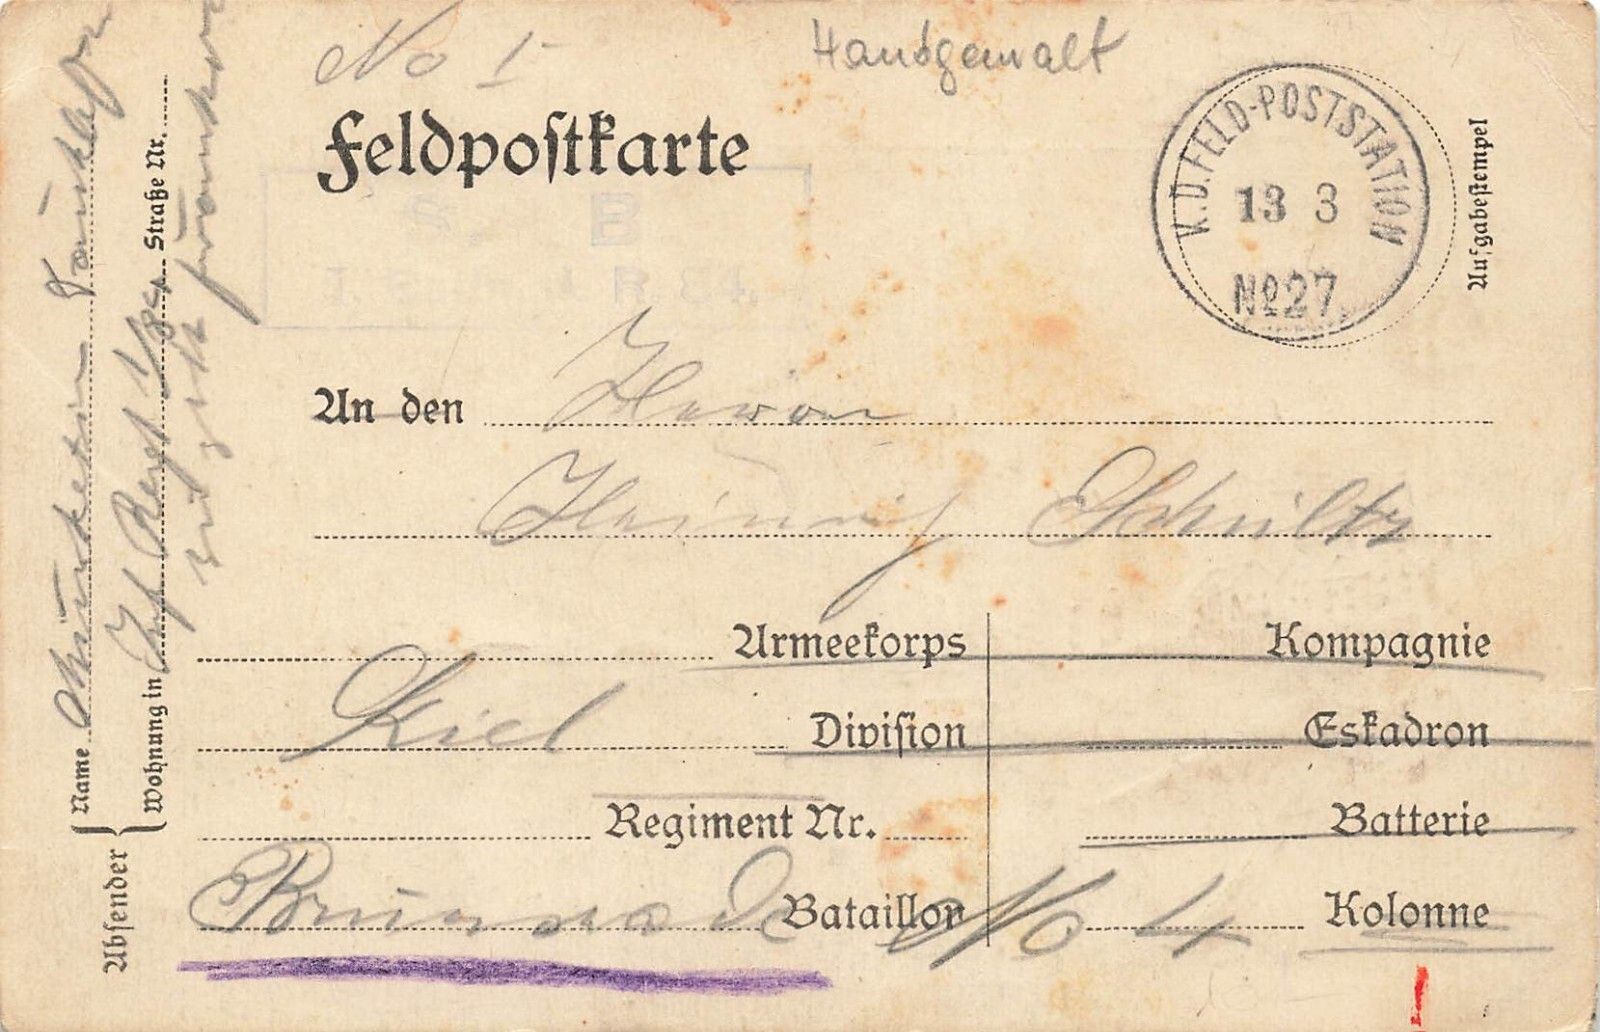 No 1
Handgemalt
Feldpostkarte
K.D.FELD-POSTSTATION
13 3
No27.
Aufgabestempel
S. B.
R. 84.
An den Herrn
Heinrich Schultz
Armeekorps
Kompagnie
Kiel
Division
Eskadron
Regiment Nr.
Batterie
Brunswick
Bataillon
No 4
Kolonne
Absender
Name
Wohnung in Inf Regt 1/84 Straße Nr.